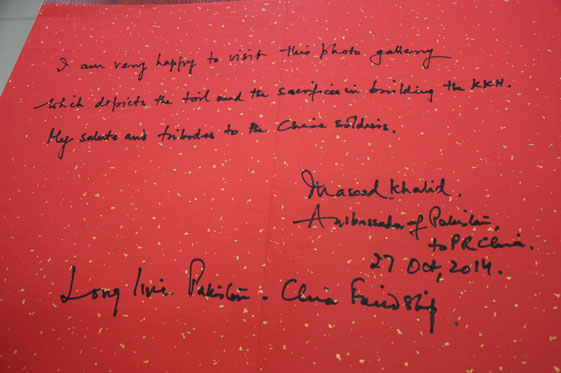 I am very happy to visit this photo gallery
which depicts the toil and the sacrifices in building the KKH.
My salute and tributes to the Chine soldiers.
Masood Khalid.
Ambassador of Pakistan,
to PR China.
27 Oct, 2014.
Long live Pakistan - China Friendship.